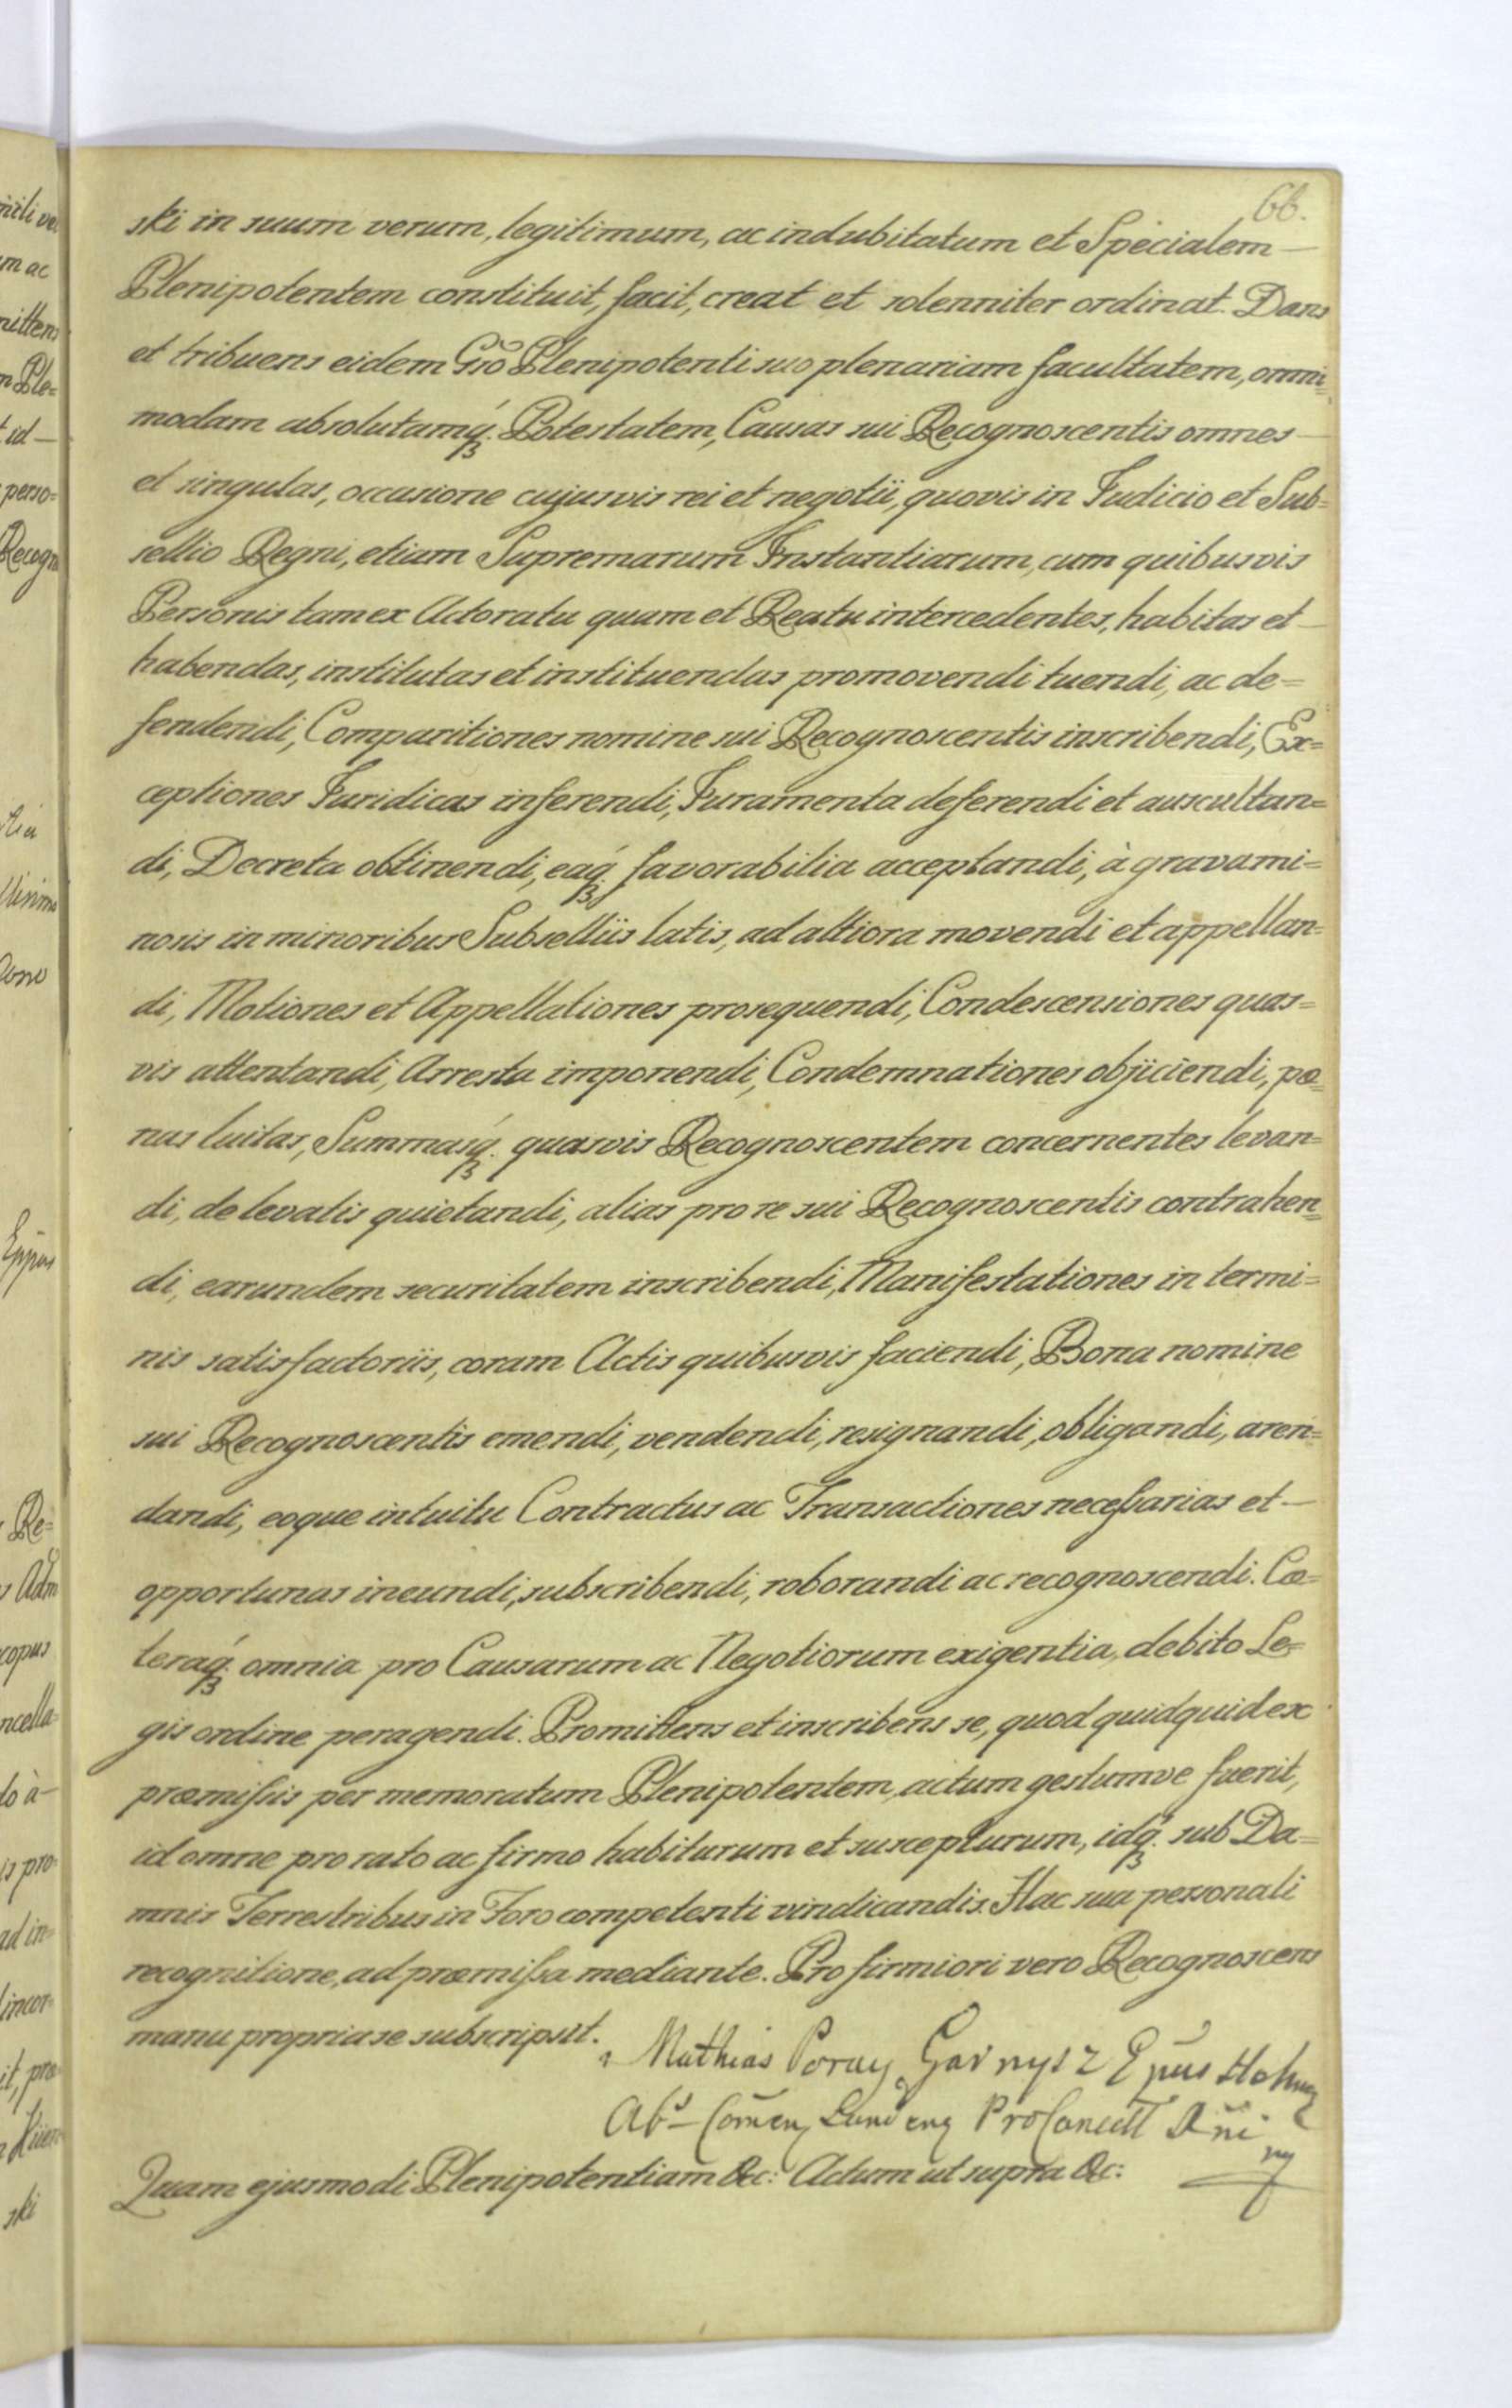 66.
ski in suum verum, legitimum, ac indubitatum et Specialem —
Plenipotentem constituit, facit, creat et solenniter ordinat. Dans
et tribuens eidem Gr̃o Plenipotenti suo plenariam facultatem, omni=
modam absolutamq́ꝫ. Potestatem, Causas sui Recognoscentis omnes —
et singulas, occasione cujusvis rei et negotii, quovis in Judicio et Sub=
sellio Regni, etiam Supremarum Instantiarum, cum quibusvis
Personis tam ex Actoratu quam et Reatu intercedentes, habitas et —
habendas, institutas et instituendas promovendi tuendi, ac de=
fendendi, Comparitiones nomine sui Recognoscentis inscribendi, Ex=
ceptiones Juridicas inferendi, Juramenta deferendi et auscultan=
di, Decreta obtinendi, eaq́ꝫ favorabilia acceptandi, à gravami=
nosis in minoribus Subselliis latis, ad altiora movendi et appellan=
di, Motiones et Appellationes prosequendi, Condescensiones quas=
vis attentandi, Arresta imponendi, Condemnationes objiciendi, pœ=
nas luitas, Summasq́ꝫ. quasvis Recognoscentem concernentes levan=
di, de levatis quietandi, alias pro re sui Recognoscentis contrahen=
di, earundem securitatem inscribendi, Manifestationes in termi=
nis satisfactoriis, coram Actis quibusvis faciendi, Bona nomine
sui Recognoscentis emendi, vendendi, resignandi, obligandi, aren=
dandi, eoque intuitu Contractus ac Transactiones necessarias et —
opportunas ineundi, subscribendi, roborandi ac recognoscendi. Cæ=
teraq́ꝫ omnia pro Causarum ac Negotiorum exigentia, debito Le=
gis ordine peragendi. Promittens et inscribens se, quod quidquid ex
præmissis per memoratum Plenipotentem, actum gestumve fuerit,
id omne pro rato ac firmo habiturum et suscepturum, idq́ꝫ. sub Da=
mnis Terrestribus in Foro competenti vindicandis. Hac sua personali
recognitione, ad præmissa mediante. Pro firmiori vero Recognoscens
manu propria se subscripsit.
Mathias Poray Garnysz Ep̃us
Ab̃s Com̃en
Quam ejusmodi Plenipotentiam &c: Actum ut supra &c: